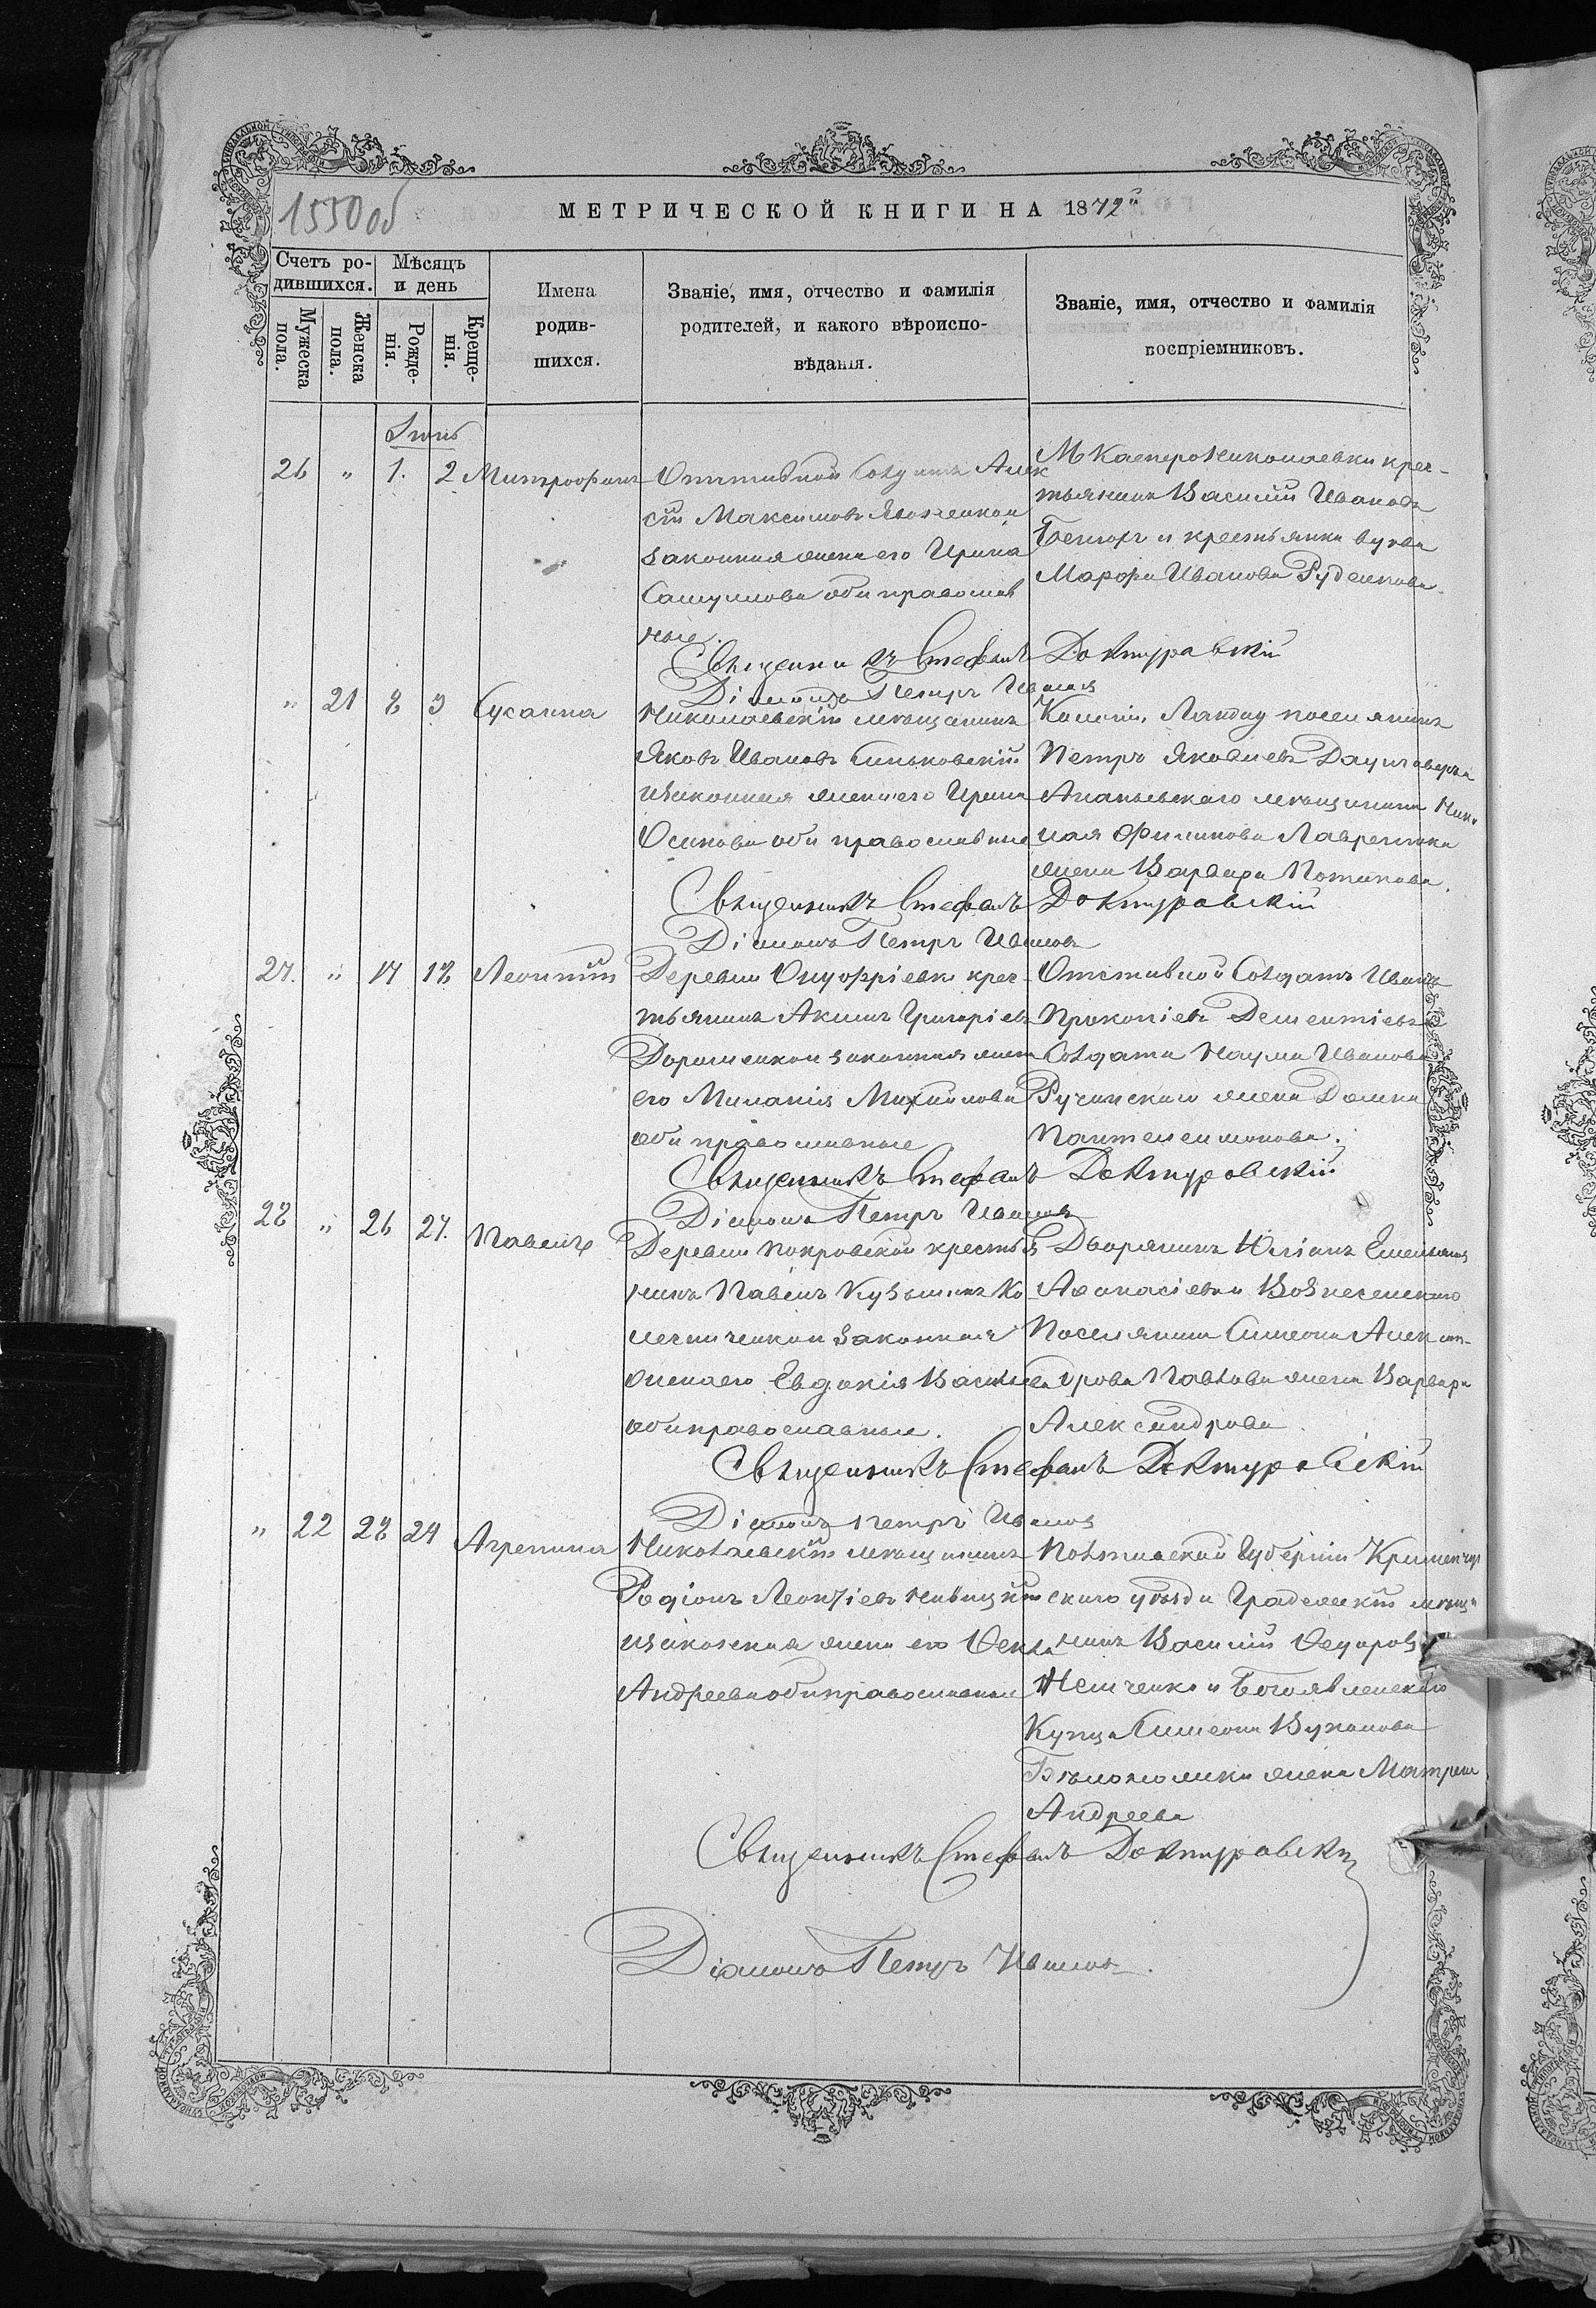 1550 об
МЕТРИЧЕСКОЙ КНИГИ НА 1872й
Счетъ ро-
дившихся.
Мѣсяцъ
и день
Мужеска
пола.
Женска
пола.
Рожде-
нія.
Креще-
нія.
Имена
родив-
шихся.
Званіе, имя, отчество и фамилія
родителей, и какого вѣроиспо-
вѣданія.
Званіе, имя, отчество и фамилія
воспріемниковъ.
Іюнь
26 " 1. 2 Митрофанъ
Отставной Солдатъ Алек
сѣй Максимовъ
законная жена его Ирина
Самуилова оба православ
ные.
М Касперо Николаевки крес-
тьянинъ Василій Ивановъ
и крестьянка вдова
Марфа Иванова Руденкова
Священникъ Стефанъ Доктуровскій
Діаконъ Петръ Ивановъ
" 21 2 3 Сусанна
Николаевскій мѣщанинъ
Яковъ Ивановъ Синьковскій
и законная жена его Ирина
Осипова оба православные
Колоніи Ландау поселянинъ
Петръ Яковлевъ
Ананьевскаго мѣщанина Нико
лая Филипова Лавренюка
жена Варвара Потапова.
Священникъ Стефанъ Доктуровскій
Діаконъ Петръ Ивановъ
27. " 17 18 Леонтій
Деревни Онуфріевки крес-
тьянинъ Акимъ Григоріевъ
законная жена
его Миланія Михайлова
оба православные
Отставной Солдатъ Иванъ
Прокопіевъ Дементіевъ
Солдата Наума Иванова
Ручинскаго жена Домна
Пантелеимонова.
Священникъ Стефанъ Доктуровскій
Діаконъ Петръ Ивановъ
28 " 26 27. Павелъ
Деревни Покровской крестья
нинъ Павелъ Кузьминъ Ко
законная
жена его Евдокія Васильева
оба православные.
Дворянинъ Юліанъ Емельянъ
Вознесенскаго
Поселянина Симеона Алексан-
дрова Павлова жена Варвара
Александрова
Священникъ Стефанъ Доктуровскій
Діаконъ Петръ Ивановъ
" 22 22 24 Агрепина
Николаевскій мѣщанинъ
Родіонъ Леонтіевъ Нивицкій
и законная жена его Векла
Андреева оба православные
Полтавской Губерніи Кременчуг
скаго уѣзда Градижскій мѣща
нинъ Василій Ѳедоровъ
Немченко и Богоявленскаго
Купца Симеона Вуколова
жена Матрена
Андреева
Священникъ Стефанъ Доктуровскій
Діаконъ Петръ Ивановъ